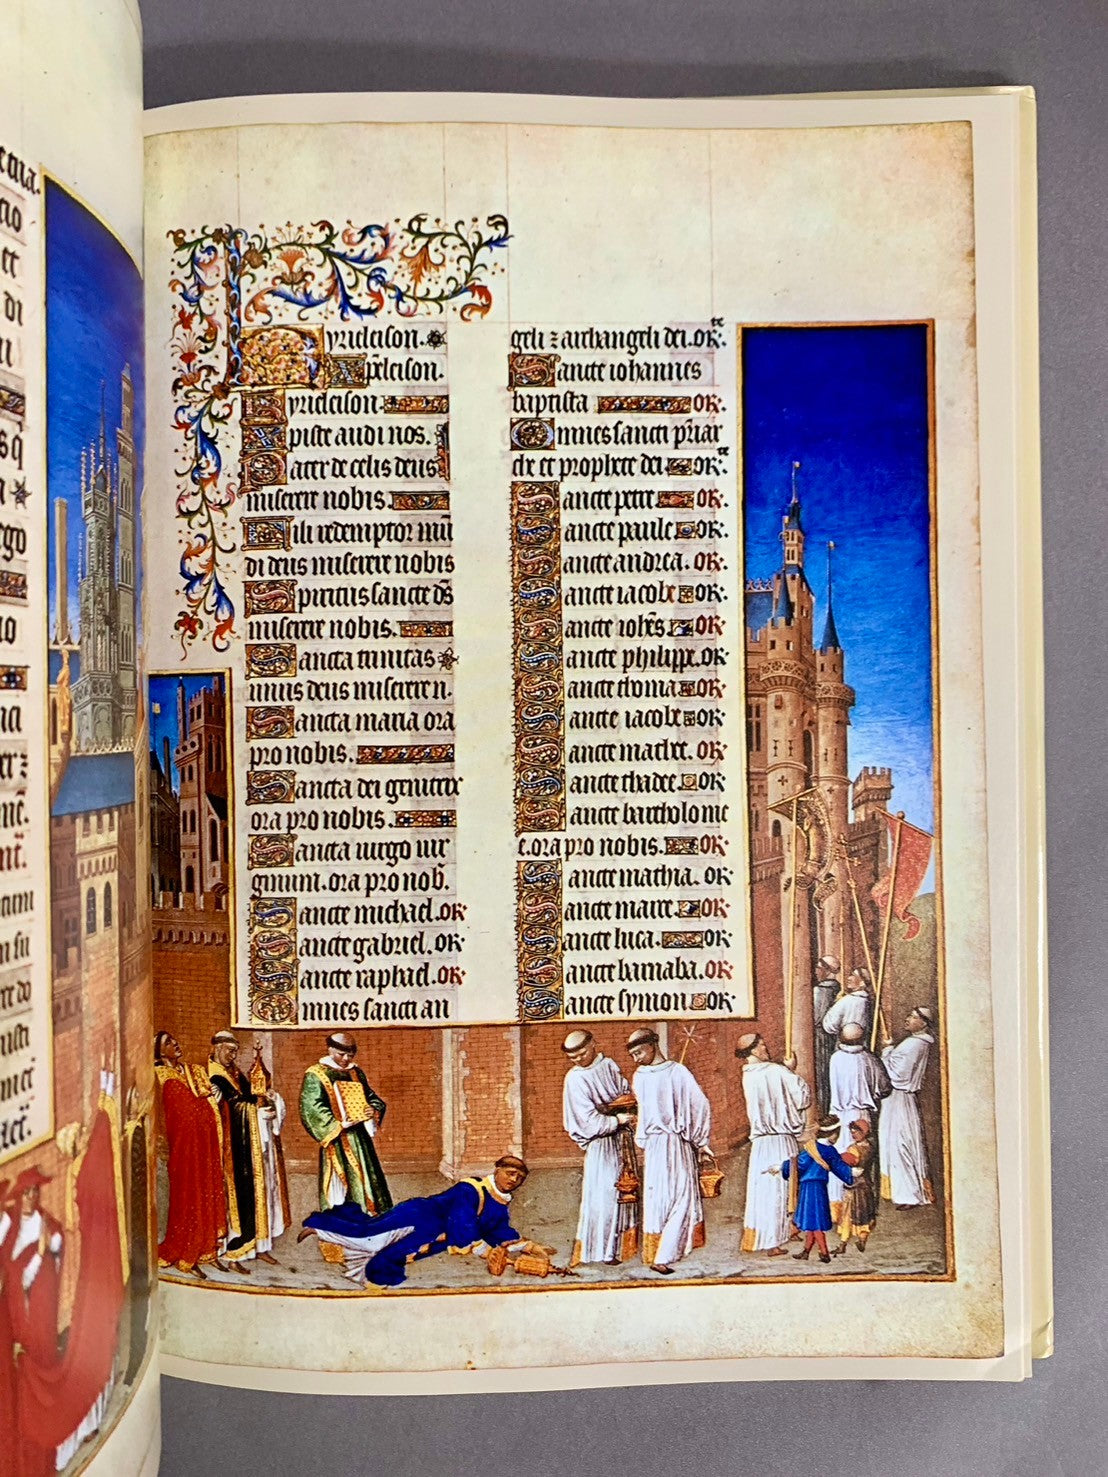 etia.
cio
et
di
ego
Kyrieleison.
Xp̃eleison.
Kyrieleison.
Xpiste audi nos.
Pater de celis deus
miserere nobis.
Fili redemptor mũ
di deus miserere nobis
Spiritus sancte d̃s
miserere nobis.
Sancta trinitas
unus deus miserere n.
Sancta maria ora
pro nobis.
Sancta dei genitrix
ora pro nobis.
Sancta virgo vir
ginum. ora pro nob̃.
Sancte michael. or.
Sancte gabriel. or.
Sancte raphael. or.
Omnes sancti an
geli ⁊ archangeli dei. or.te
Sancte iohannes
baptista or.
Omnes sancti p̃riar
che et prophete dei or.te
Sancte petre or.
Sancte paule or.
Sancte andrea. or.
Sancte iacobe or.
Sancte ioh̃es or.
Sancte philippe. or
Sancte thoma or.
Sancte iacobe or.
Sancte mathee. or.
Sancte thadee. or
Sancte bartholome
e. ora pro nobis. or.
Sancte mathia. or.
Sancte marce. or.
Sancte luca. or.
Sancte barnaba. or.
Sancte symon or.